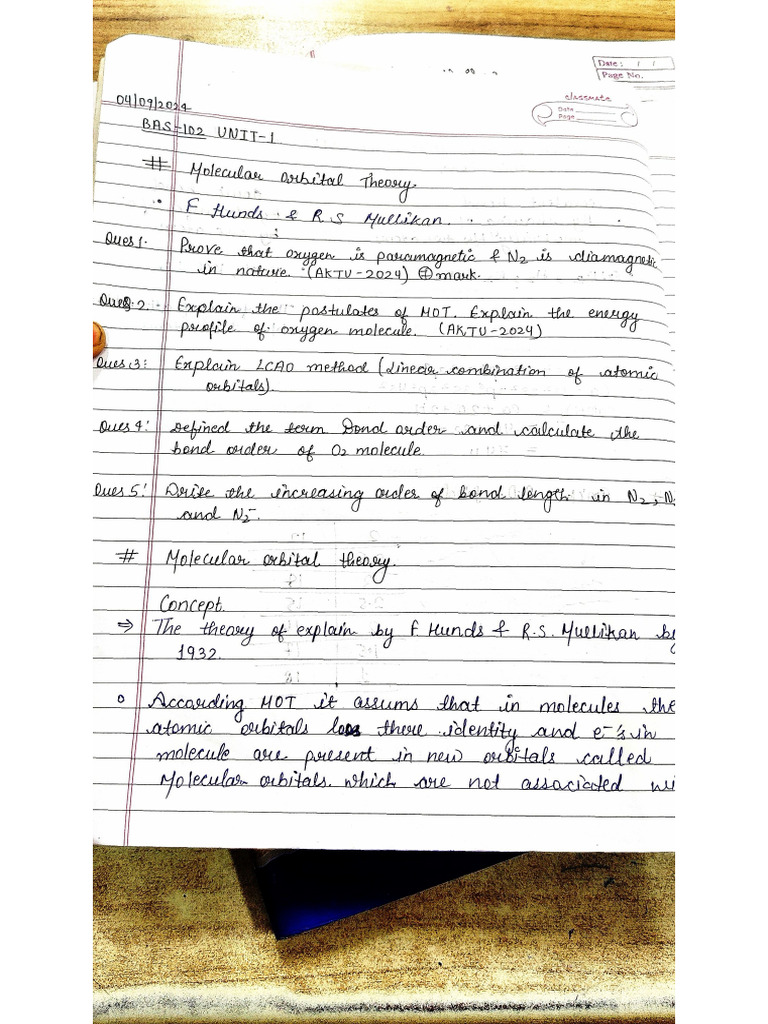 Date: / /
Page No.
classmate
Date
Page
04/09/2024
BAS-102 UNIT-1
# Molecular Orbital Theory.
F Hunds & R S Mullikan.
Ques 1. Prove that oxygen is paramagnetic & N2 is diamagnetic
in nature. (AKTU-2024) mark.
Ques 2. Explain the postulates of MOT. Explain the energy
profile of oxygen molecule. (AKTU-2024)
Ques 3: Explain LCAO method (Linear combination of atomic
orbitals).
Ques 4: Defined the term Bond order and calculate the
bond order of O2 molecule.
Ques 5: Drite the increasing order of bond length in N2, N
and N2-.
# Molecular orbital theory.
Concept.
⇒ The theory of explain by F. Hunds & R.S. Mullikan by
1932.
o According MOT it assums that in molecules the
atomic orbitals loss there identity and e-'s in
molecule are present in new orbitals called
Molecular orbitals. which are not associated wi